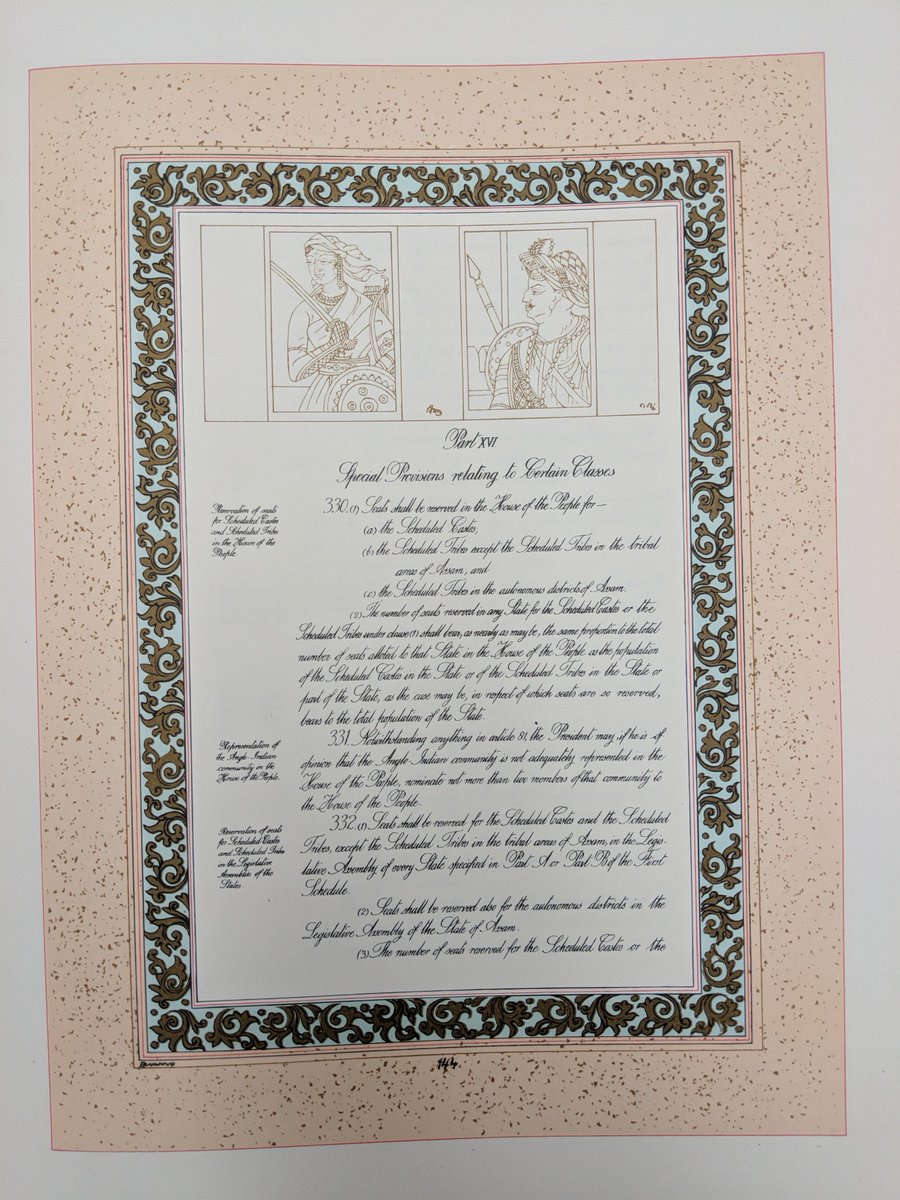 Part XVI
Special Provisions relating to Certain Classes
Reservation of seats
for Scheduled Castes
and Scheduled Tribes
in the House of the
People.
330. (1) Seats shall be reserved in the House of the People for—
(a) the Scheduled Castes;
(b) the Scheduled Tribes except the Scheduled Tribes in the tribal
areas of Assam; and
(c) the Scheduled Tribes in the autonomous districts of Assam.
(2) The number of seats reserved in any State for the Scheduled Castes or the
Scheduled Tribes under clause (1) shall bear, as nearly as may be, the same proportion to the total
number of seats allotted to that State in the House of the People as the population
of the Scheduled Castes in the State or of the Scheduled Tribes in the State or
part of the State, as the case may be, in respect of which seats are so reserved,
bears to the total population of the State.
Representation of
the Anglo-Indian
community in the
House of the People.
331. Notwithstanding anything in article 81, the President may, if he is of
opinion that the Anglo-Indian community is not adequately represented in the
House of the People, nominate not more than two members of that community to
the House of the People.
Reservation of seats
for Scheduled Castes
and Scheduled Tribes
in the Legislative
Assemblies of the
States
332. (1) Seats shall be reserved for the Scheduled Castes and the Scheduled
Tribes, except the Scheduled Tribes in the tribal areas of Assam, in the Legis-
lative Assembly of every State specified in Part A or Part B of the First
Schedule.
(2) Seats shall be reserved also for the autonomous districts in the
Legislative Assembly of the State of Assam.
(3) The number of seats reserved for the Scheduled Castes or the
144